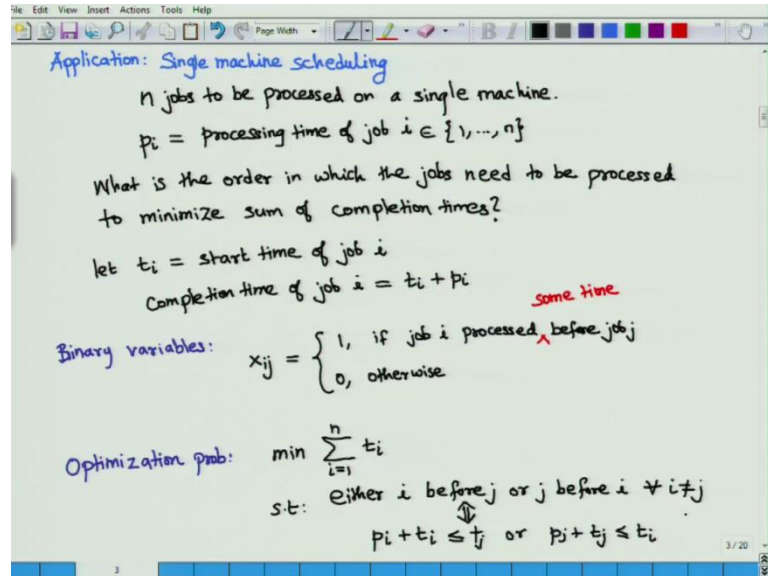 File Edit View Insert Actions Tools Help
Page Width
B I
Application: Single machine scheduling
n jobs to be processed on a single machine.
pi = processing time of job i ∈ {1,...,n}
What is the order in which the jobs need to be processed
to minimize sum of completion times?
let ti = start time of job i
Completion time of job i = ti + pi
some time
Binary variables: xij = { 1, if job i processed ^ before job j
0, otherwise
Optimization prob: min n∑i=1 ti
s.t: either i before j or j before i ∀ i≠j
⇕
pi + ti ≤ tj or pj + tj ≤ ti
3 / 20
3